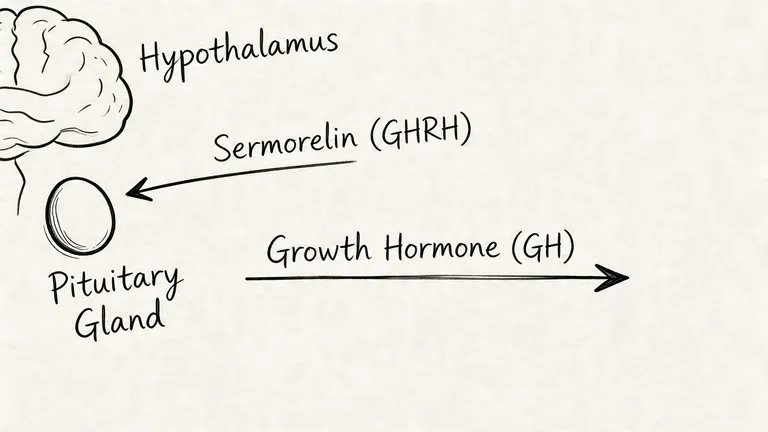 Hypothalamus
Sermorelin (GHRH)
Growth Hormone (GH)
Pituitary
Gland